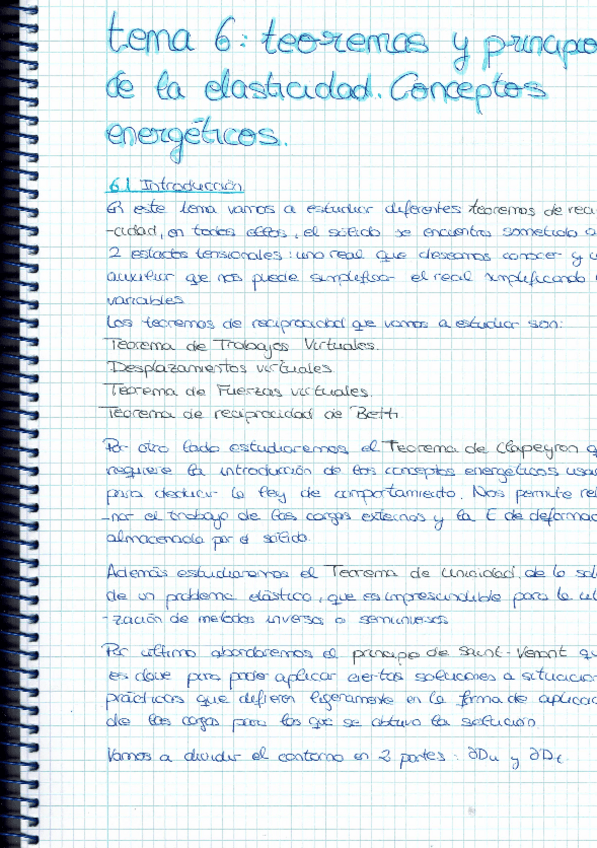 tema 6: teoremas y principio
de la elasticidad. Conceptos
energéticos.
6.1 Introducción
En este tema vamos a estudiar diferentes teoremas de reci
-cidad, en todos ellos, el sólido se encuentra sometido a
2 estados tensionales: uno real que deseamos conocer y u
auxiliar que nos puede simplificar el real simplificando
variables
Los teoremas de reciprocidad que vamos a estudiar son:
Teorema de Trabajos Virtuales.
Desplazamientos virtuales
Teorema de Fuerzas virtuales.
Teorema de reciprocidad de Betti
Por otro lado estudiaremos el Teorema de Clapeyron q
requiere la introducción de los conceptos energéticos usa
para deducir la ley de comportamiento. Nos permite rel
-nar el trabajo de las cargas externas y la E de deformac
almacenada por el sólido.
Además estudiaremos el Teorema de Unicidad, de la sol
de un problema elástico, que es imprescindible para la uti
-zación de metodos inversos o semiinversos
Por último abordaremos el principio de Saint-Venant qu
es clave para poder aplicar ciertas soluciones a situacion
prácticas que difieren ligeramente en la forma de aplicac
de las cargas para las que se obtuvo la solución.
Vamos a dividir el contorno en 2 partes: ∂Du y ∂Dt.